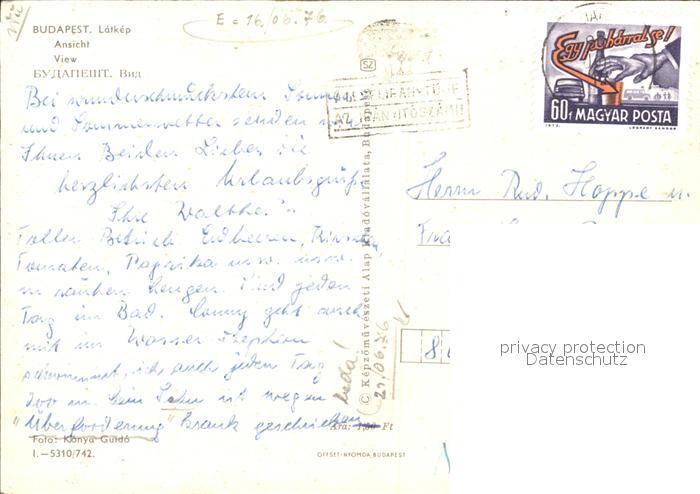 E = 16/06.76
BUDAPEST. Látkép
Ansicht
View
БУДАПЕШТ. Вид
Bei wunderschönstem
und Sommerwetter senden
Ihnen Beiden Lieben die
herzlichsten Urlaubsgrüße
Ihre
Toller Betrieb Erdbeeren,
Tomaten, Paprika usw. usw.
in rauhen Mengen. Und jeden
Tag im Bad. Conny geht auch
mit ins Wasser. Stephan
schwimmt, ich auch jeden Tag
200 m. Sohn ist wegen
"Überforderung" krank geschrieben
Foto: Kónya Guidó
I.—5310/742.
SZ
© Képzőművészeti Alap Kiadóvállalata, Budapest
Ára: Ft
OFFSET-NYOMDA, BUDAPEST
beda!
22/06.76
AZ IRÁNYÍTÓSZÁM!
Egy pohárral se!
60f MAGYAR POSTA
1973. LÉGRÁDY SÁNDOR
Herrn Rud. Hoppe u.
Fra
8
privacy protection
Datenschutz